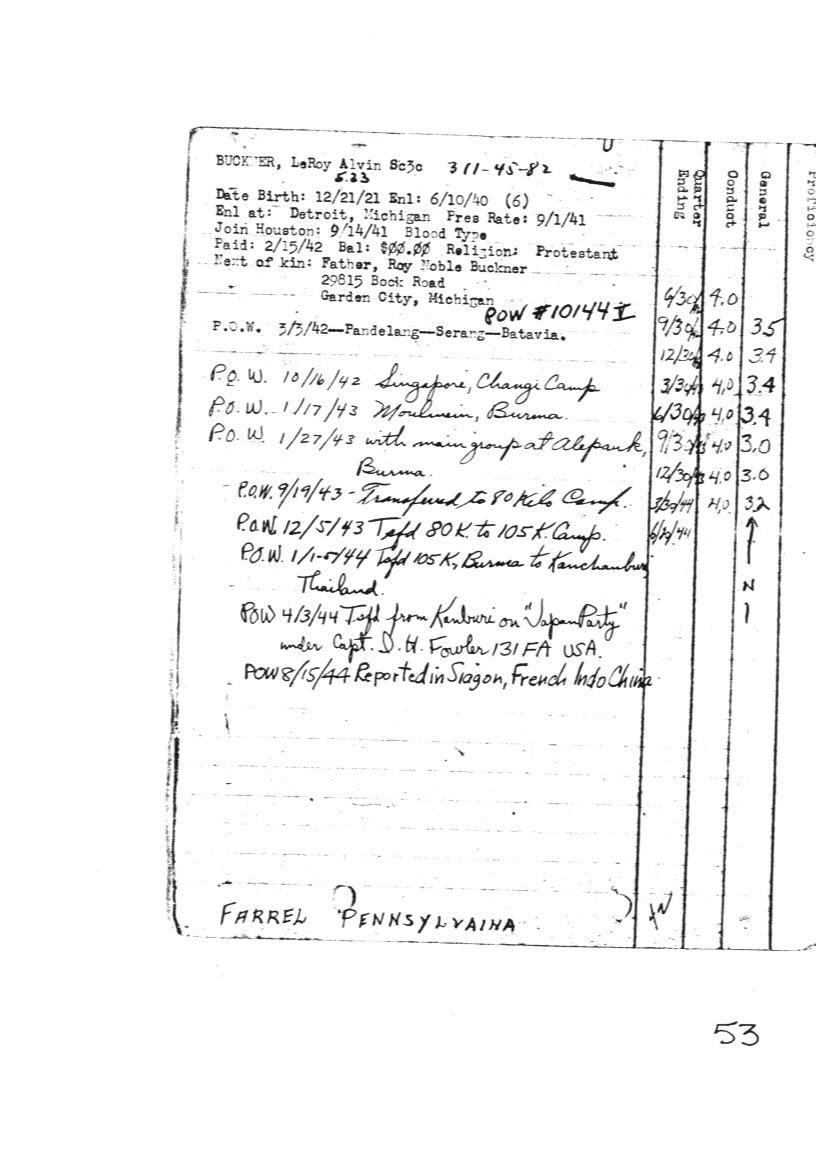 U
BUCKNER, LeRoy Alvin Sc3c 311-45-82
5.23
Date Birth: 12/21/21 Enl: 6/10/40 (6)
Enl at: Detroit, Michigan Pres Rate: 9/1/41
Join Houston: 9/14/41 Blood Type
Paid: 2/15/42 Bal: $00.00 Religion: Protestant
Next of kin: Father, Roy Noble Buckner
29815 Bock Road
Garden City, Michigan
POW #10144 I
P.O.W. 3/3/42—Pandelang—Serang—Batavia.
P.O.W. 10/16/42 Singapore, Changi Camp
P.O.W. 1/17/43 Moulmein, Burma.
P.O.W. 1/27/43 with main group at Alepauk,
Burma.
P.O.W. 9/19/43 - Transfered to 80 Kilo Camp.
P.O.W. 12/5/43 Tsfd 80 K. to 105 K. Camp.
P.O.W. 1/1-5/44 Tsfd 105 K, Burma to Kanchanburi
Thailand.
POW 4/3/44 Tsfd from Kanburi on "Japan Party"
under Capt. D. H. Fowler 131 FA USA.
POW 8/15/44 Reported in Siagon, French Indo China
FARREL PENNSYLVAINA
Quarter Ending Conduct General Proficiency
6/30 4.0
9/30 4.0 3.5
12/30 4.0 3.4
3/30 4.0 3.4
6/30 4.0 3.4
9/30 4.0 3.0
12/30 4.0 3.0
3/30/44 4.0 3.2
6/30/44
N
53